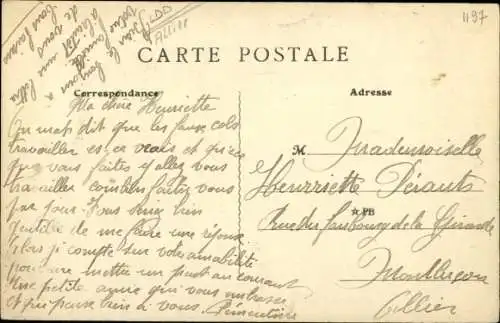 1197
LDD
Allier
CARTE POSTALE
Correspondance
Adresse
Ma chère Henriette
On mat dit que les faux cols
travailler es ce vrais et qu'es ce
que vous faites y allez vous
travailler combien faites vous
par jour. Vous seriez bien
gentille de me faire une réponse
Alors je compte sur votre amabilité
pour me mettre un peut au courant
Une petite amie qui vous embrasse
et qui pense bien à vous. Clémentine
M. Mademoiselle
Henrriette Pérauts
Rue du faubourg de la Gironde
PB
Montluçon
Allier